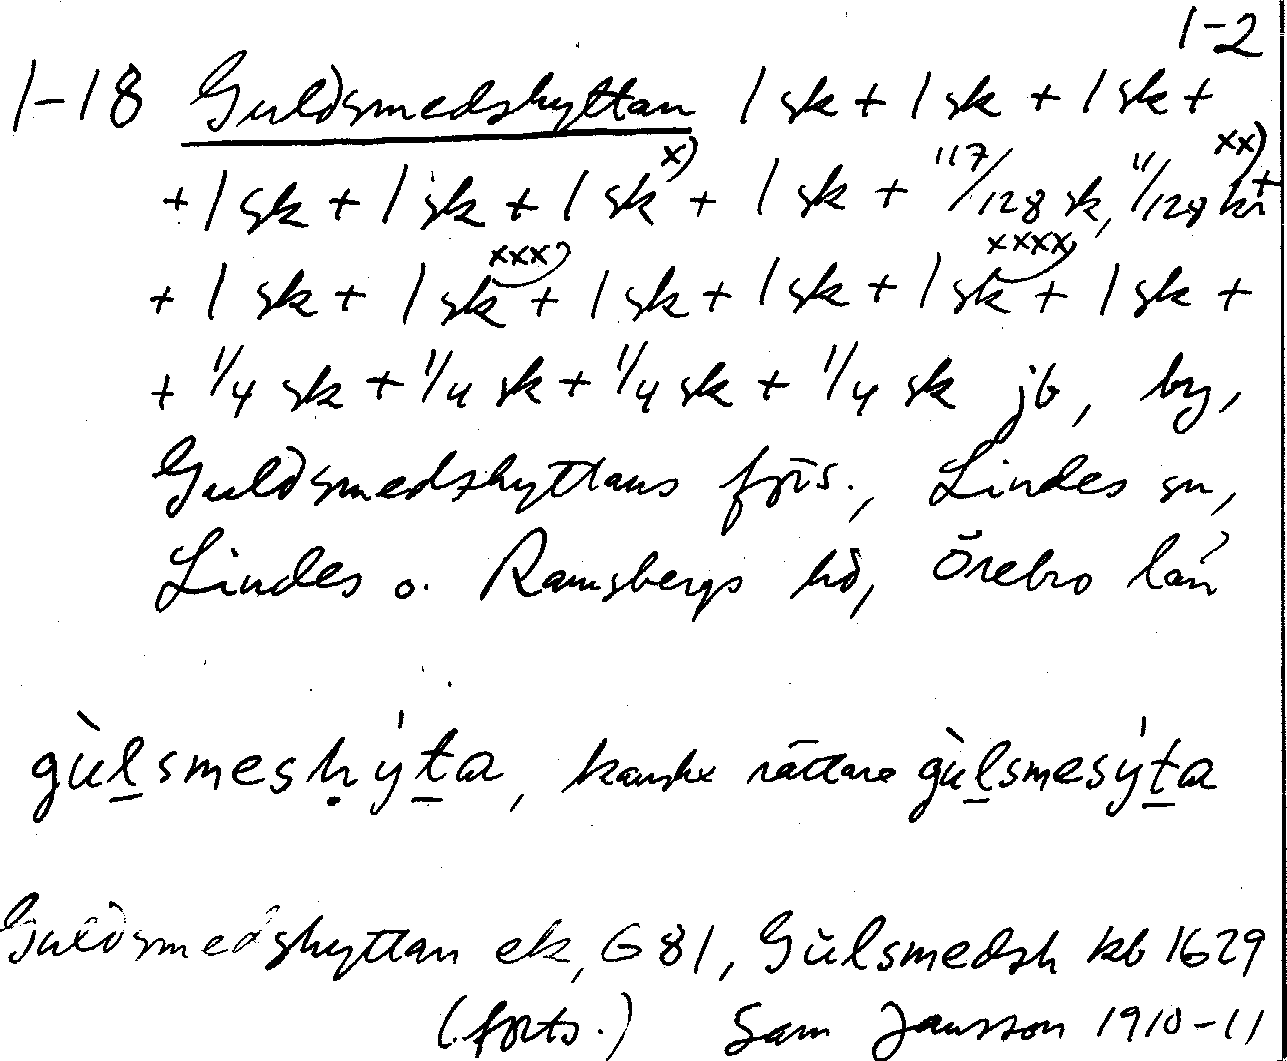 1-2
1-18 Guldsmedshyttan 1 sk + 1 sk + 1 sk +
+ 1 sk + 1 sk + 1 sk x) + 1 sk + 117/128 sk, 11/128 kr xx) +
+ 1 sk + 1 sk xxx) + 1 sk + 1 sk + 1 sk xxxx) + 1 sk +
+ 1/4 sk + 1/4 sk + 1/4 sk + 1/4 sk jb, by,
Guldsmedshyttans förs., Lindes sn,
Lindes o. Ramsbergs hd, Örebro län
gùl̠smesḥýt̠a, kanske rättare gùl̠smesýt̠a
Guldsmedshyttan ek, G 81, Gŭlsmedsh kb 1629
(forts.) Sam Jansson 1910-11